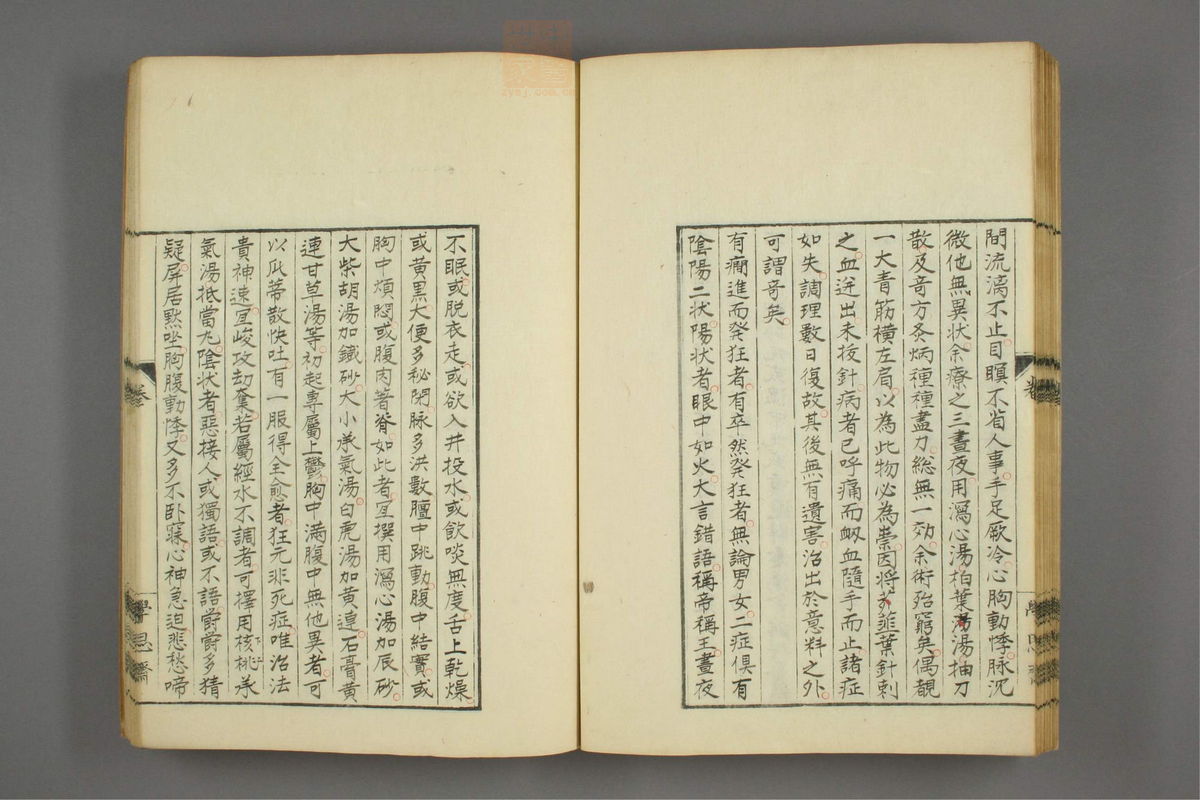 間流漓不止目瞑不省人事手足厥冷心胸動悸脉沉
微他無異狀余療之三晝夜用瀉心湯柏葉湯湯抽刀
散及奇方灸焫種種盡力総無一効余術殆窮矣偶覩
一大青筋横左肩以為此物必為祟因將韮葉針刺
之血迸出未拔針病者已呼痛而衂血隨手而止諸症
如失調理數日復故其後無有遺害治出於意料之外
可謂奇矣
有癇進而発狂者有卒然発狂者無論男女二症俱有
陰陽二状陽状者眼中如火大言錯語稱帝稱王晝夜
不眠或脱衣走或欲入井投水或飲啖無度舌上乾燥
或黄黒大便多秘閉脉多洪數膻中跳動腹中結實或
胸中煩悶或腹肉著脊如此者宜撰用瀉心湯加辰砂
大柴胡湯加鐵砂大小承氣湯白虎湯加黄連石膏黄
連甘草湯等初起專屬上鬱胸中滿腹中無他異者可
以瓜蒂散快吐有一服得全愈者狂元非死症唯治法
貴神速宜峻攻劫奪若屬經水不調者可擇用桃核承
氣湯抵當丸陰状者惡接人或獨語或不語欝欝多猜
疑屏居黙坐胸腹動悸又多不卧寐心神急迫悲愁啼
卷
學思齋
zysj.com.cn